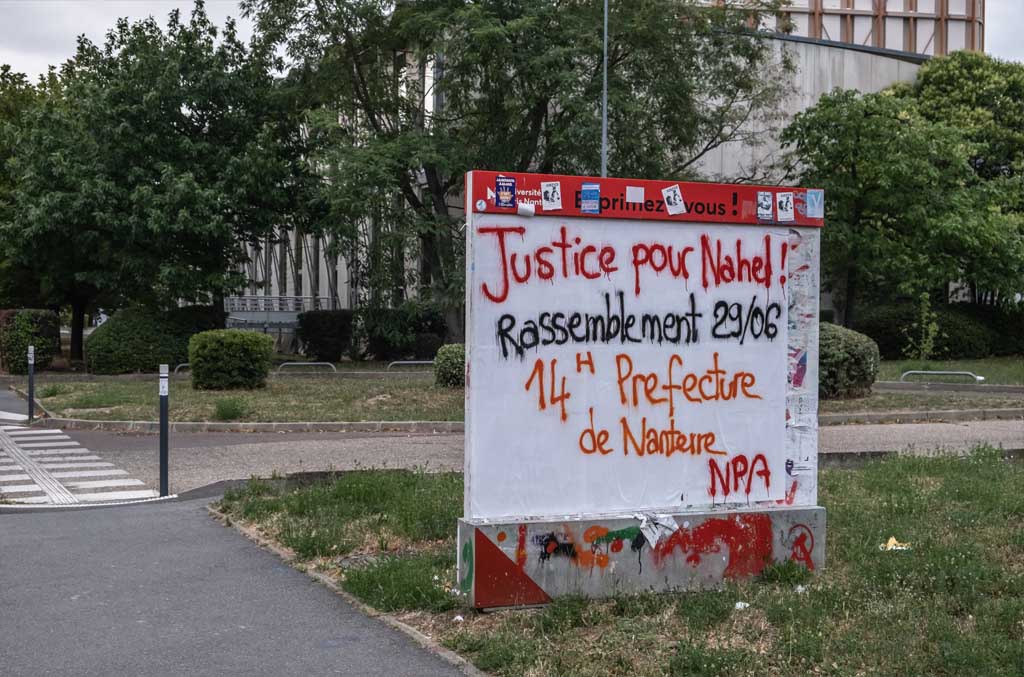 Exprimez-vous !
Justice pour Nahel !
Rassemblement 29/06
14H Prefecture
de Nanterre
NPA